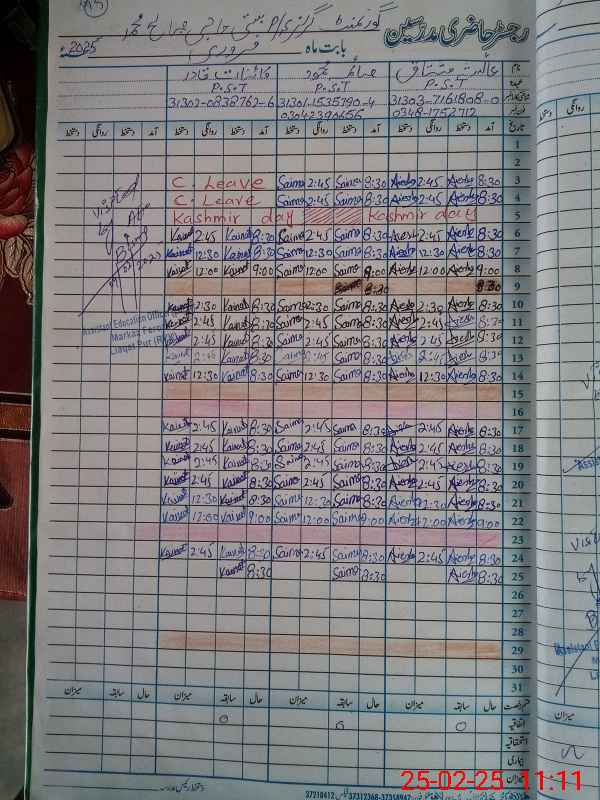 رجسٹر حاضری مدرسین
گورنمنٹ گرلز P/S بستی حاجی صالح محمد
بابت ماہ فروری 2025ء
نام عائشہ مشتاق صائمہ محمود کائنات قادر
عہدہ P.S.T P.S.T P.S.T
31303-7161808-0 31301-1535790-4 31302-0838762-6
0348-1752712 03042390656
تاریخ آمد دستخط روانگی دستخط آمد دستخط روانگی دستخط آمد دستخط روانگی دستخط
1
2
C. Leave Saima 2:45 Saima 8:30 Aiesha 2:45 Aiesha 8:30 3
C. Leave Saima 2:45 Saima 8:30 Aiesha 2:45 Aiesha 8:30 4
Kashmir day Kashmir day 5
Kainat 2:45 Kainat 8:30 Saima 2:45 Saima 8:30 Aiesha 2:45 Aiesha 8:30 6
Kainat 12:30 Kainat 8:30 Saima 12:30 Saima 8:30 Aiesha 12:30 Aiesha 8:30 7
Kainat 12:00 Kainat 9:00 Saima 12:00 Saima 9:00 Aiesha 12:00 Aiesha 9:00 8
8:30 8:30 9
Kainat 2:30 Kainat 8:30 Saima 2:30 Saima 8:30 Aiesha 2:30 Aiesha 8:30 10
Kainat 2:45 Kainat 8:30 Saima 2:45 Saima 8:30 Aiesha 2:45 Aiesha 8:30 11
Kainat 2:45 Kainat 8:30 Saima 2:45 Saima 8:30 Aiesha 2:45 Aiesha 8:30 12
Kainat 2:45 Kainat 8:30 Saima 2:45 Saima 8:30 Aiesha 2:45 Aiesha 8:30 13
Kainat 12:30 Kainat 8:30 Saima 12:30 Saima 8:30 Aiesha 12:30 Aiesha 8:30 14
15
16
Kainat 2:45 Kainat 8:30 Saima 2:45 Saima 8:30 Aiesha 2:45 Aiesha 8:30 17
Kainat 2:45 Kainat 8:30 Saima 2:45 Saima 8:30 Aiesha 2:45 Aiesha 8:30 18
Kainat 2:45 Kainat 8:30 Saima 2:45 Saima 8:30 Aiesha 2:45 Aiesha 8:30 19
Kainat 2:45 Kainat 8:30 Saima 2:45 Saima 8:30 Aiesha 2:45 Aiesha 8:30 20
Kainat 12:30 Kainat 8:30 Saima 12:30 Saima 8:30 Aiesha 12:30 Aiesha 8:30 21
Kainat 12:00 Kainat 9:00 Saima 12:00 Saima 9:00 Aiesha 12:00 Aiesha 9:00 22
23
Kainat 2:45 Kainat 8:30 Saima 2:45 Saima 8:30 Aiesha 2:45 Aiesha 8:30 24
Kainat 8:30 Saima 8:30 Aiesha 8:30 25
26
27
28
29
30
31
Visited by AEO
Assistant Education Officer
Markaz Feroza
Liaqat Pur (RYK)
حال سابقہ میزان حال سابقہ میزان حال سابقہ میزان
اتفاقیہ 0 0 0
استحقاقیہ
بیماری
میزان
37210412 37312368-37358947
25-02-25 11:11